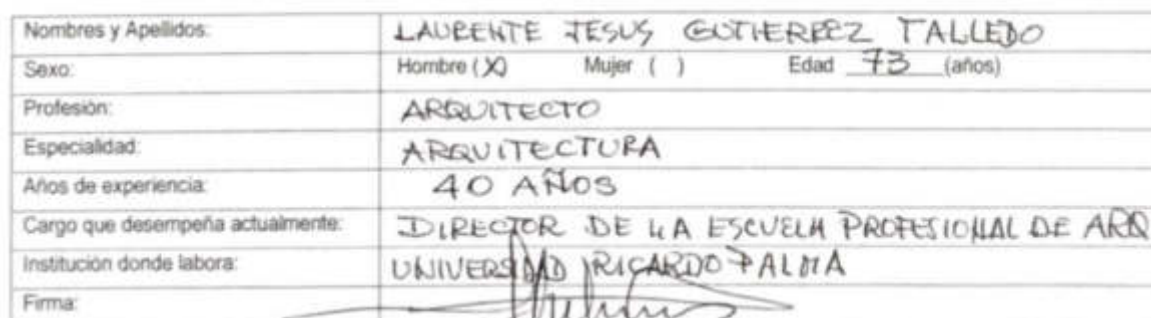 Nombres y Apellidos: LAURENTE JESUS GUTIERREZ TALLEDO
Sexo: Hombre (X) Mujer ( ) Edad 73 (años)
Profesión: ARQUITECTO
Especialidad: ARQUITECTURA
Años de experiencia: 40 AÑOS
Cargo que desempeña actualmente: DIRECTOR DE LA ESCUELA PROFESIONAL DE ARQ
Institución donde labora: UNIVERSIDAD RICARDO PALMA
Firma: